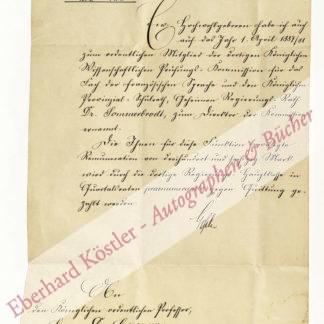 Ew. Hochwohlgeboren habe ich auch
auf das Jahr 1. April 1887/88
zum ordentlichen Mitglied der dortigen Königlichen
Wissenschaftlichen Prüfungs-Kommission für das
Fach der französischen Sprache und den Königlichen
Provinzial-Schulrath, Geheimen Regierungs-Rath
Dr. Sommerbrodt, zum Direktor der Kommission
ernannt.
Die Ihnen für diese Funktion
Remuneration von dreihundert und Mark
wird durch die dortige Regierungs-Hauptkasse in
Quartalraten gegen Quittung ge-
zahlt werden.
An
den Königlichen ordentlichen Professor,
Eberhard Köstler - Autographen & Bücher